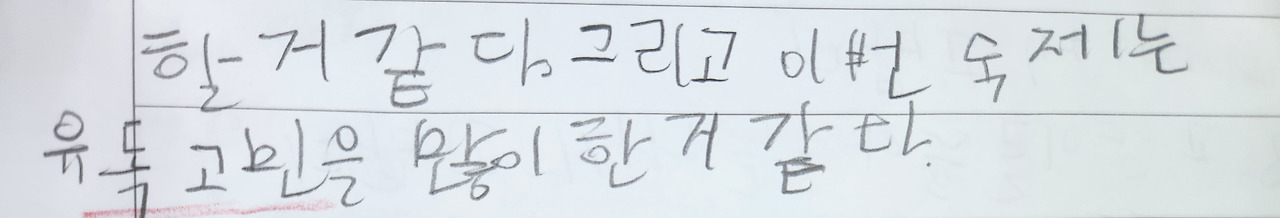 할 거 같다. 그리고 이번 숙제는
유독 고민을 많이 한 거 같다.